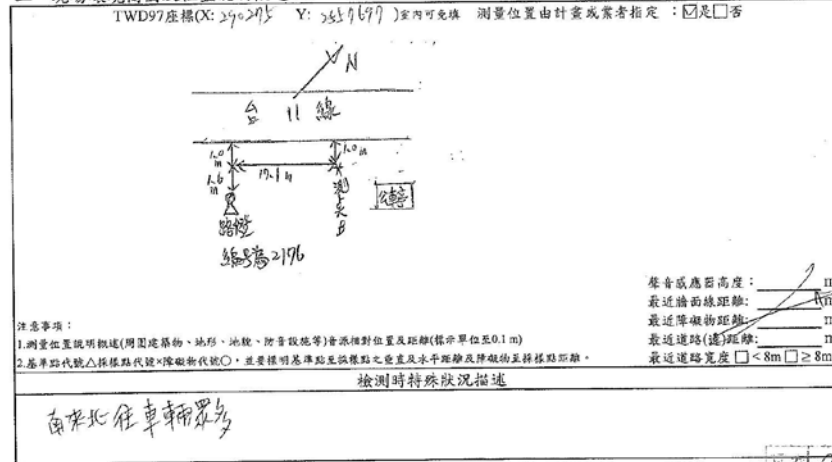 TWD97座標(X: 290275 Y: 2557697 )室內可免填 測量位置由計畫或業者指定 :☑是□否
N
台 11 線
1.0 m
1.0 m
1.6 m
測點B
公車亭
路燈
編号為2176
聲音感應器高度: m
最近牆面線距離: m
最近障礙物距離: m
最近道路(邊)距離: m
最近道路寬度 □<8m □≥8m
注意事項:
1.測量位置說明概述(周圍建築物、地形、地貌、防音設施等)音源相對位置及距離(標示單位至0.1 m)
2.基準點代號△採樣點代號×障礙物代號○,並要標明基準點至採樣點之垂直及水平距離及障礙物至採樣點距離。
檢測時特殊狀況描述
南來北往車輛眾多